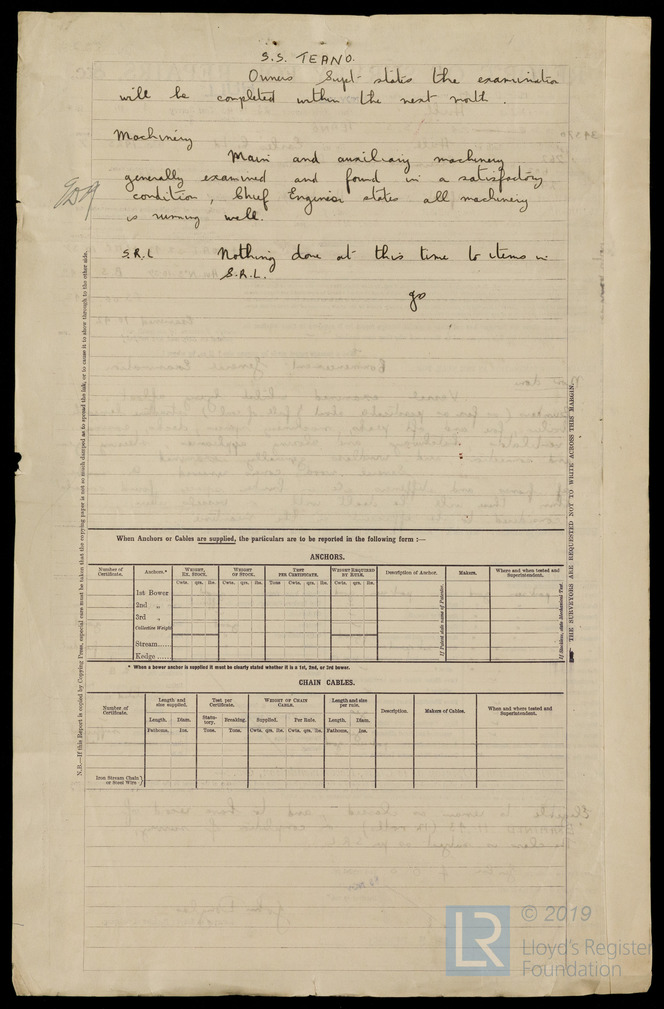 S.S. TEANO.
Owners Supt states the examination
will be completed within the next month.
Machinery
Main and auxiliary machinery
generally examined and found in a satisfactory
condition, Chief Engineer states all machinery
is running well.
S.R.L Nothing done at this time to items in
S.R.L.
N.B.—If this Report is copied by Copying Press, especial care must be taken that the copying paper is not so much damped as to spread the ink, or to cause it to show through to the other side.
THE SURVEYORS ARE REQUESTED NOT TO WRITE ACROSS THIS MARGIN.
When Anchors or Cables are supplied, the particulars are to be reported in the following form :—
ANCHORS.
Number of Certificate. Anchors.* WEIGHT, EX. STOCK. WEIGHT OF STOCK. TEST PER CERTIFICATE. WEIGHT REQUIRED BY RULE. Description of Anchor. Makers. Where and when tested and Superintendent.
Cwts. qrs. lbs. Cwts. qrs. lbs. Tons Cwts. qrs. lbs. Cwts. qrs. lbs.
1st Bower
2nd „
3rd „
Collective Weight
Stream......
Kedge ......
If Patent state name of Patentee.
If Stockless, state Mechanical Test.
* When a bower anchor is supplied it must be clearly stated whether it is a 1st, 2nd, or 3rd bower.
CHAIN CABLES.
Number of Certificate. Length and size supplied. Test per Certificate. WEIGHT OF CHAIN CABLE. Length and size per rule. Description. Makers of Cables. When and where tested and Superintendent.
Length. Diam. Statutory. Breaking. Supplied. Per Rule. Length. Diam.
Fathoms. Ins. Tons. Tons. Cwts. qrs. lbs. Cwts. qrs. lbs. Fathoms. Ins.
Iron Stream Chain
or Steel Wire
LR © 2019
Lloyd's Register
Foundation